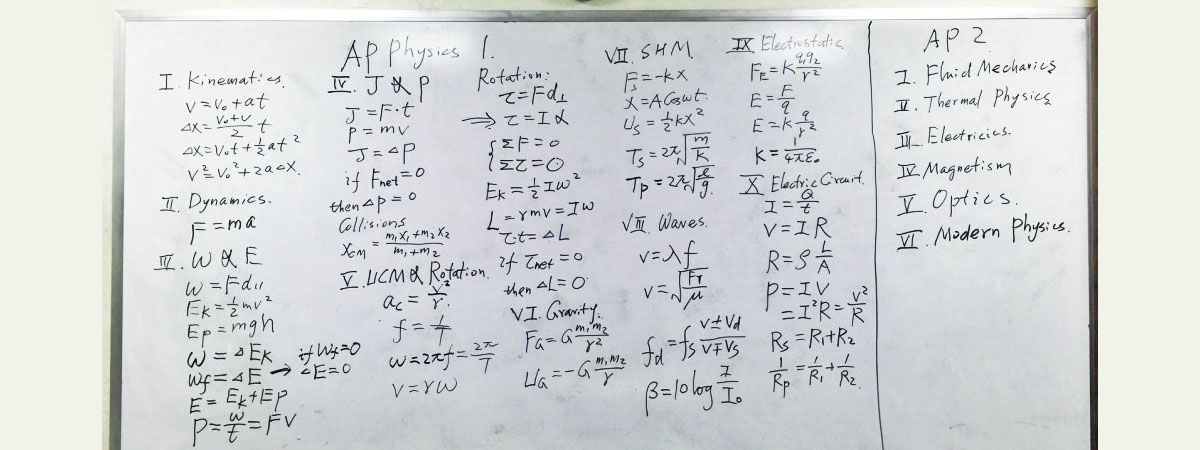 AP Physics 1.
I. Kinematics.
v = v₀ + at
Δx = (v₀+v)/2 t
Δx = v₀t + ½at²
v² = v₀² + 2aΔx.
II. Dynamics.
F = ma
IV. W & E
W = Fd∥
Ek = ½mv²
Ep = mgh
W = ΔEk
Wf = ΔE → if Wf = 0 ΔE = 0
E = Ek + Ep
P = W/t = FV
IV. J & P
J = F·t
P = mv
J = ΔP
if Fnet = 0
then ΔP = 0
Collisions
Xcm = (m₁x₁+m₂x₂)/(m₁+m₂)
V. UCM & Rotation.
ac = v²/r.
f = 1/T
ω = 2πf = 2π/T
v = rω
Rotation:
τ = Fd⊥
⇒ τ = Iα
{ ΣF = 0
Στ = 0
Ek = ½Iω²
L = rmv = Iω
τ·t = ΔL
if τnet = 0
then ΔL = 0
VI. Gravity.
FG = G m₁m₂/r²
UG = -G m₁m₂/r
VII. SHM.
Fs = -kx
x = A cos ωt.
Us = ½kx²
Ts = 2π√(m/k)
Tp = 2π√(ℓ/g).
VIII. Waves.
v = λf
v = √(FT/μ)
fd = fs (V±Vd)/(V∓Vs)
β = 10 log I/I₀
IX Electrostatic
FE = K q₁q₂/r²
E = F/q
E = K q/r²
K = 1/4πε₀
X Electric Circuit.
I = Q/t
V = IR
R = ρ L/A
P = IV
= I²R = V²/R
Rs = R₁+R₂
1/Rp = 1/R₁ + 1/R₂
AP 2
I. Fluid Mechanics
II. Thermal Physics
III. Electricics.
IV Magnetism
V. Optics.
VI. Modern Physics.